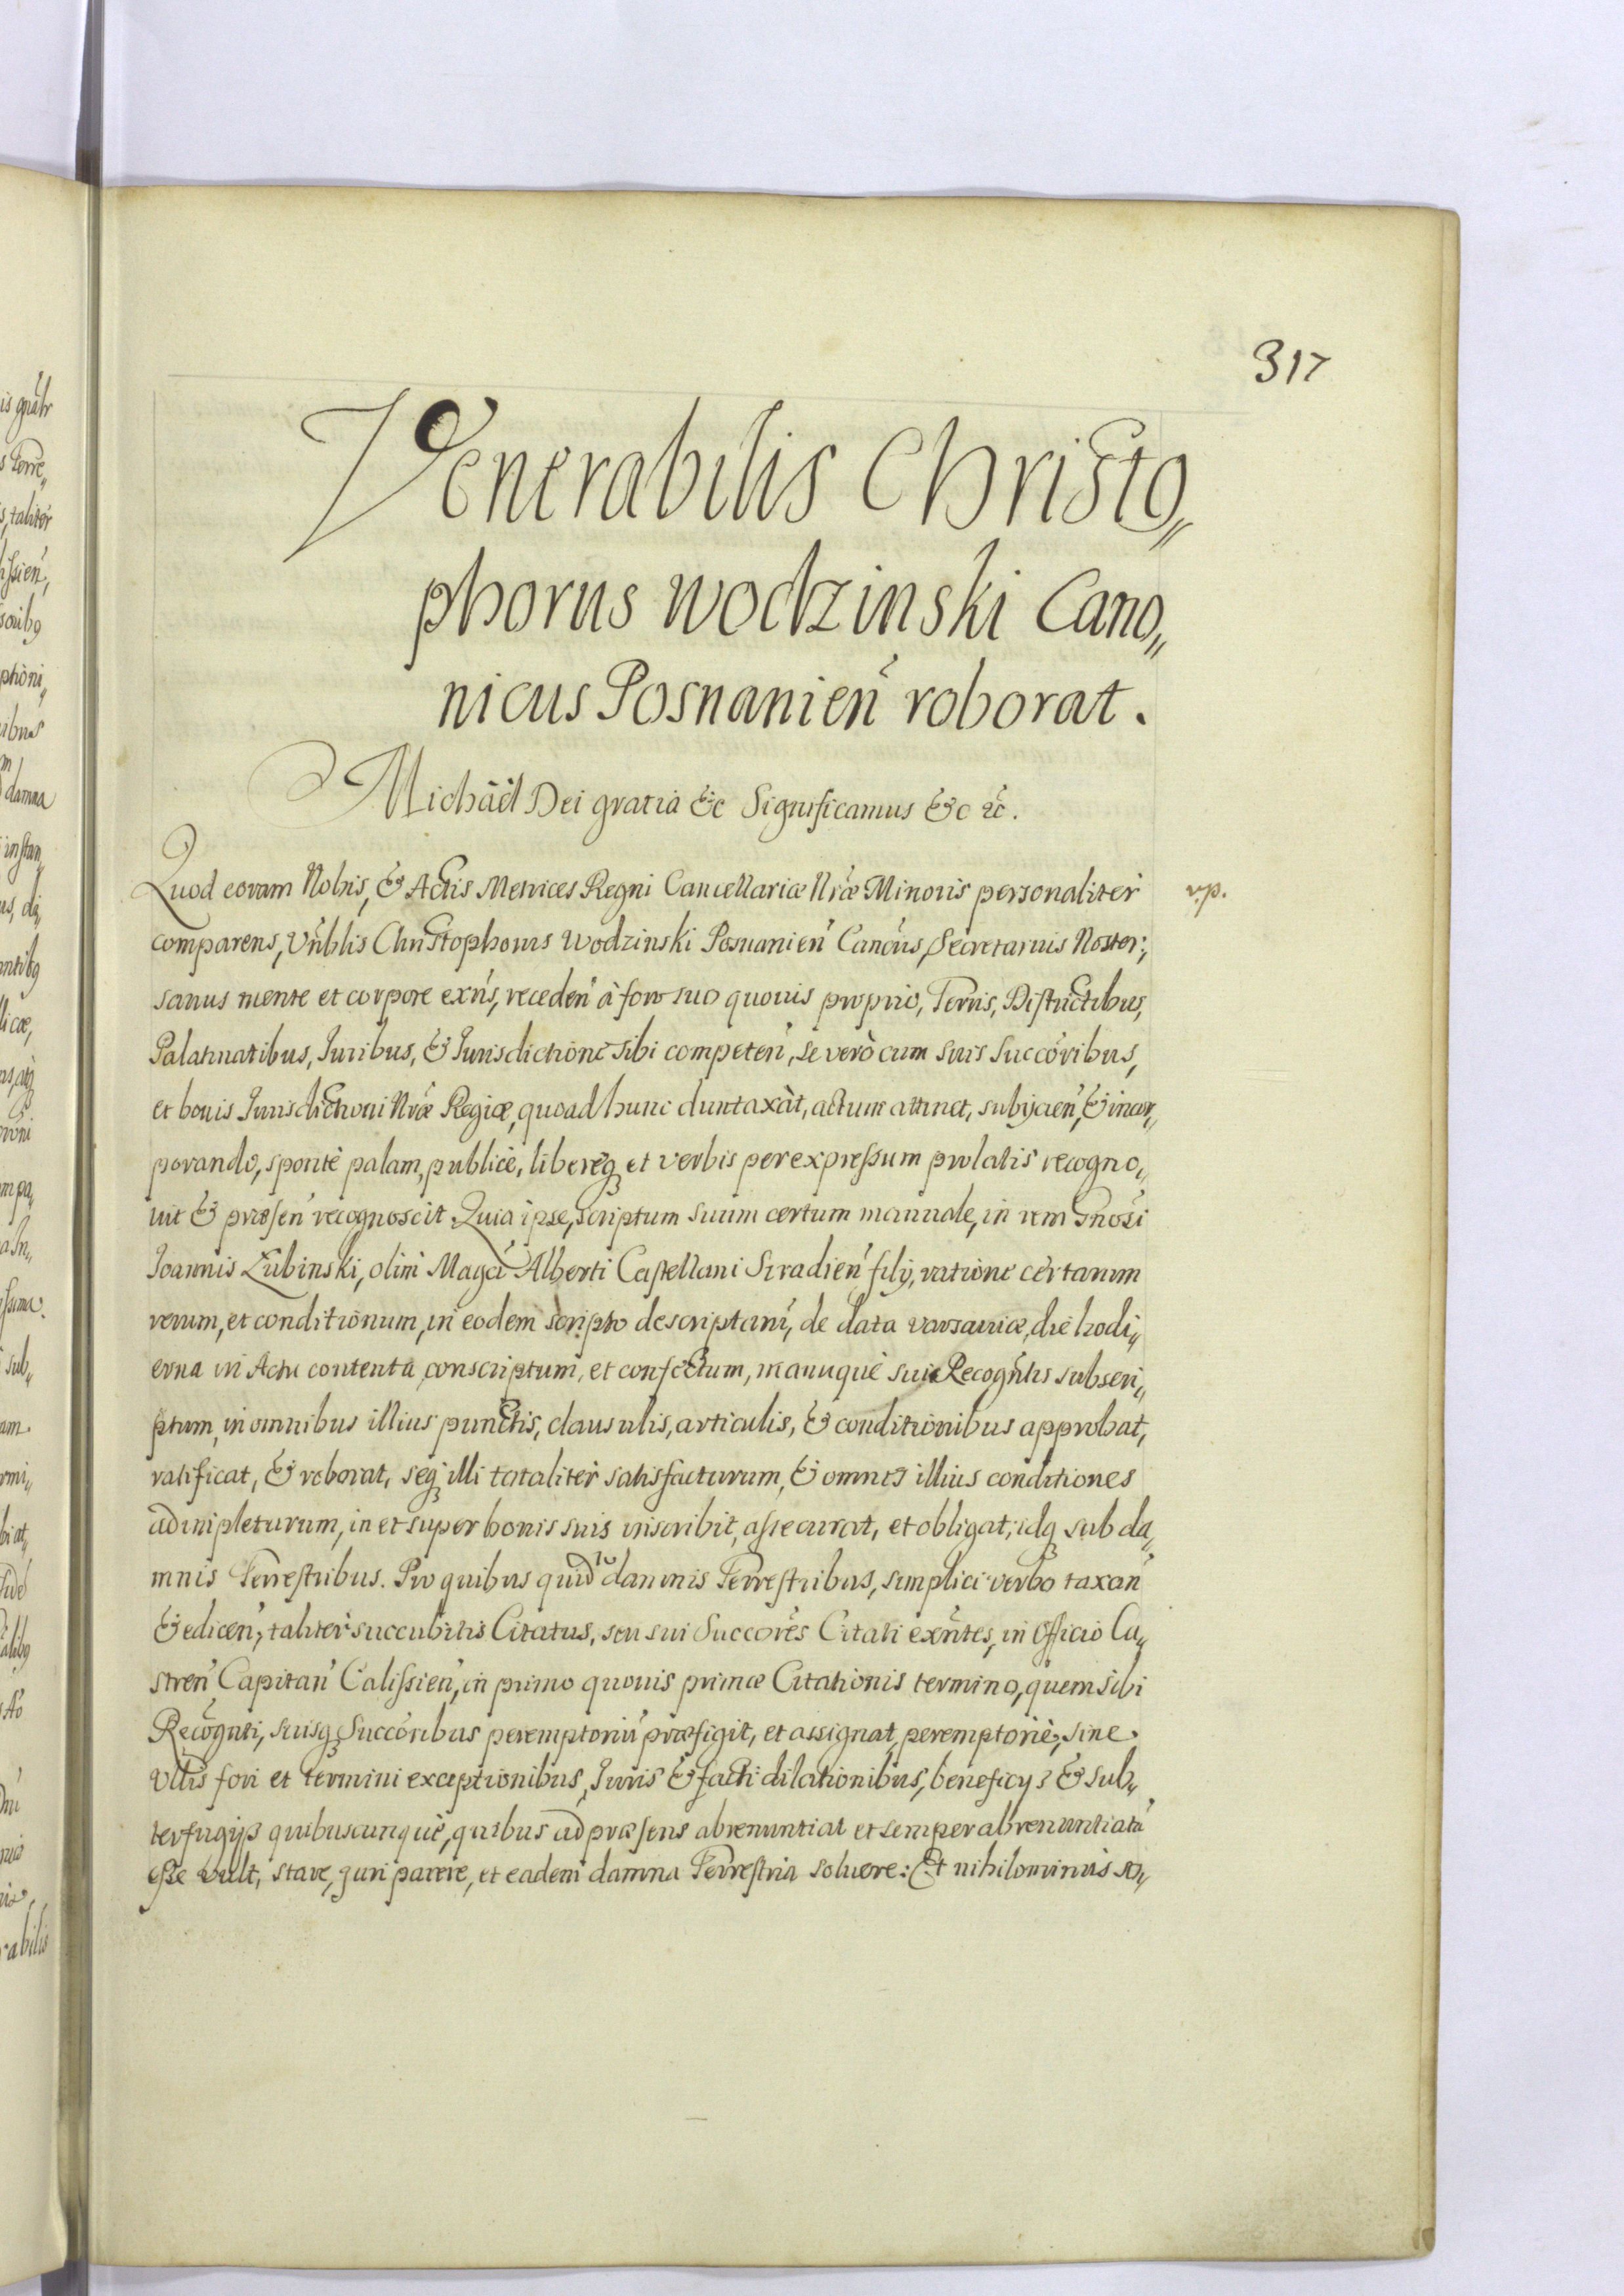 317
Venerabilis Christo„
phorus Wodzinski Cano„
nicus Posnanien̄ roborat.
Michäel Dei gratia &c Significamus &c &c.
Quod coram Nobis, & Actis Metrices Regni Cancellariæ Nr̄æ Minoris personaliter
comparens, Vn̄blis Christophorus Wodzinski Posnanien̄ Canc̄us, Secretarius Noster,
sanus mente et corpore exn̄s, receden̄ à foro suo quovis proprio, Terris, Districtibus,
Palatinatibus, Juribus, & Jurisdictione sibi competen̄, se verò cum suis Succōribus,
et bonis Jurisdictioni Nr̄æ Regiæ, quoad hunc duntaxàt, actum attinet, subijcien̄, & incor„
porando, spontè palam, publicè, libereq̨ et verbis per expressum prolatis recogno„
uit & præsen̄ recognoscit. Quia ipse, scriptum suum certum manuale, in rem Gnōsi
Joannis Łubinski, olim Magc̄i Alberti Castellani Siradien̄ filij, ratione certarum
rerum, et conditionum, in eodem scripto descriptarū, de data Varsauiæ, die hodi„
erna in Actu contentâ, conscriptum, et confectum, manuquè suiæ Recogn̄tis subscri„
ptum, in omnibus illius punctis, clausulis, articulis, & conditionibus approbat,
ratificat, & roborat, seq̨ illi totaliter satisfacturum, & omnes illius conditiones
adimpleturum, in et super bonis suis inscribit, assecurat, et obligat; idq̨ sub da„
mnis Terrestribus. Pro quibus quid̄ damnis Terrestribus, simplici verbo taxan̄
& edicen̄, taliter succubitis Citatus, seu sui Succorēs Citati exn̄tes, in Officio Ca„
stren̄ Capitan̄ Calissien̄, in primo quovis primæ Citationis termino, quem sibi
Recōgn̄ti, suisq̨ Succōribus peremptoriū præfigit, et assignat, peremptoriè, sine
Vllis fori et termini exceptionibus, Juris & facti dilationibus, beneficijs & sub„
terfugijs quibuscunquè, quibus ad præsens abrenuntiat et semper abrenuntiatū
esse vult, stare, juri parere, et eadem damna Terrestria soluere: Et nihilominùs so„